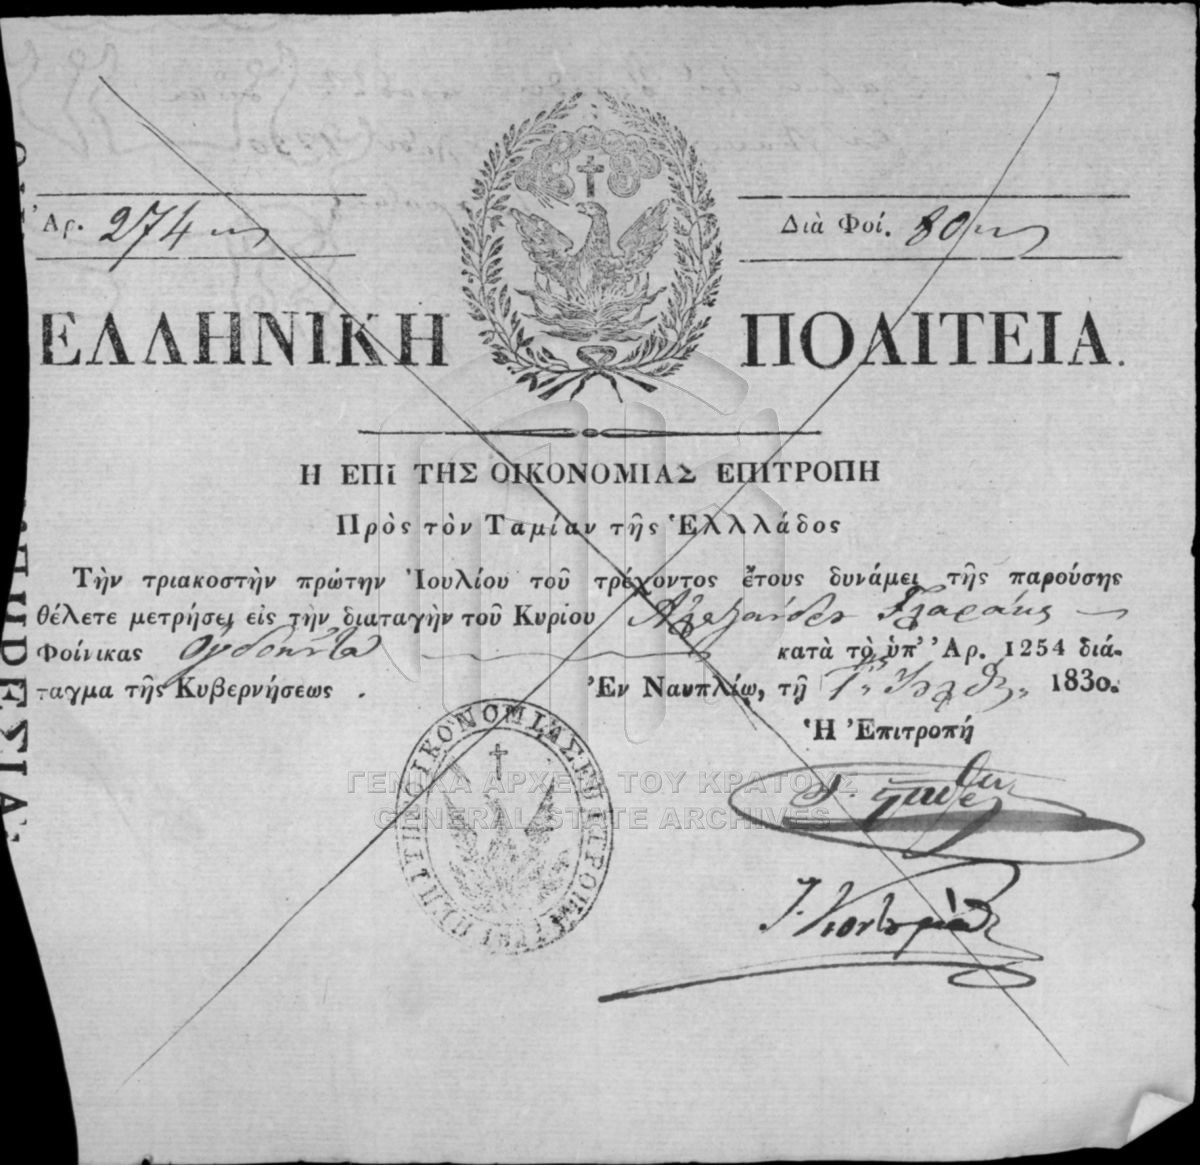 Ἀρ. 274
Διὰ Φοί. 80
ΕΛΛΗΝΙΚΗ ΠΟΛΙΤΕΙΑ.
Η ΕΠΙ ΤΗΣ ΟΙΚΟΝΟΜΙΑΣ ΕΠΙΤΡΟΠΗ
Πρὸς τὸν Ταμίαν τῆς Ἑλλλάδος
Τὴν τριακοστὴν πρώτην Ἰουλίου τοῦ τρέχοντος ἔτους δυνάμει τῆς παρούσης
θέλετε μετρήσει εἰς τὴν διαταγὴν τοῦ Κυρίου Ἀλεξάνδρου
Φοίνικας ὀγδοήντα κατὰ τὸ ὑπ' Ἀρ. 1254 διά-
ταγμα τῆς Κυβερνήσεως . Ἐν Ναυπλίῳ, τῇ 1830.
Ἡ Ἐπιτροπή
Ι. Κοντουμᾶς
Η ΕΠΙ ΤΗΣ ΟΙΚΟΝΟΜΙΑΣ ΕΠΙΤΡΟΠΗ
ΓΕΝΙΚΑ ΑΡΧΕΙΑ ΤΟΥ ΚΡΑΤΟΥΣ
GENERAL STATE ARCHIVES